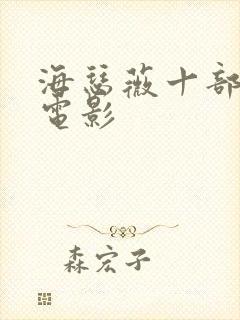 海瑟薇十部
電影
森宏子